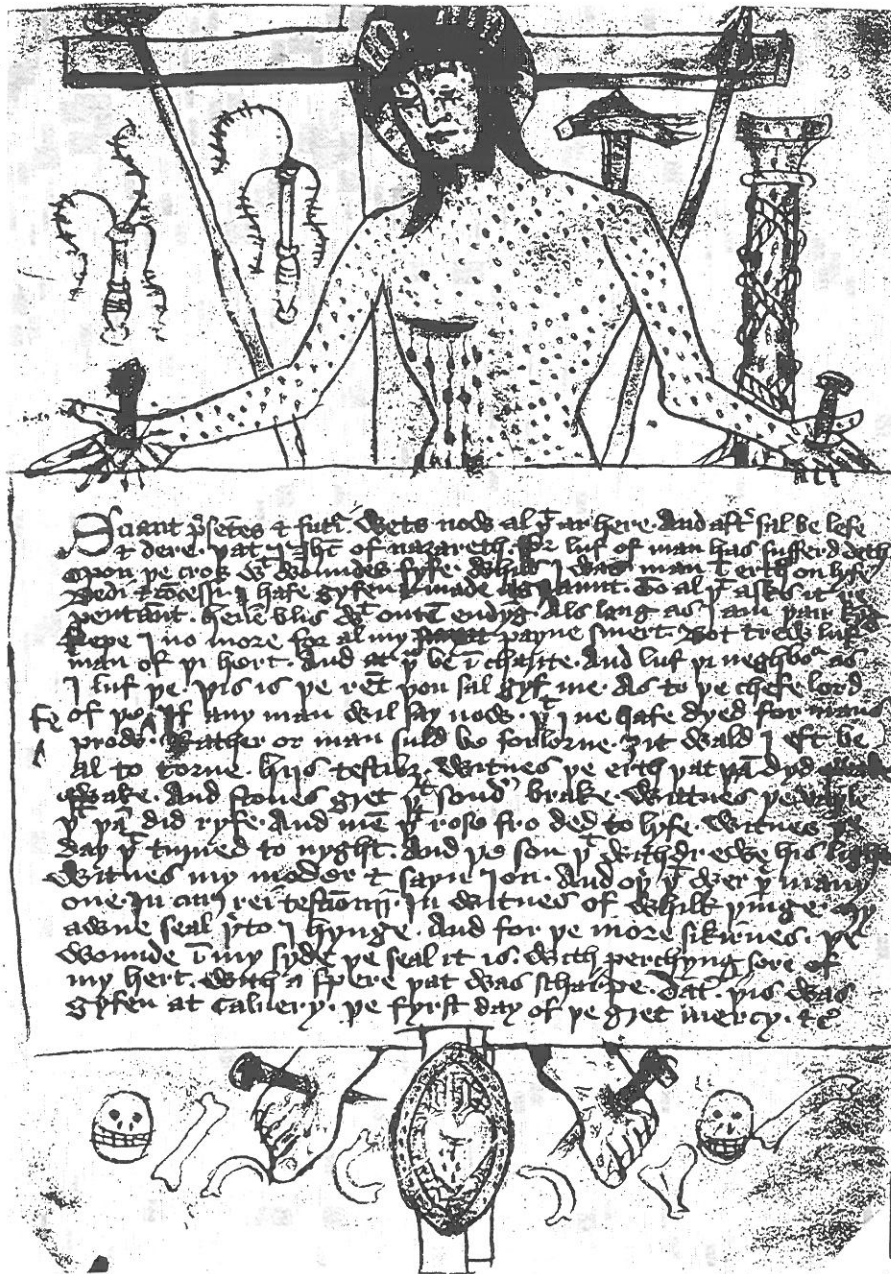 23
Sciant p̄setēs & futˀi. Wets now al þt ar here. And aftˀ sal be lefe
& dere. þat I Ihc of nazareth. For luf of man has sufferd deth
Opon þe cros wt woundes fyfe. Whils I was man ī erth on lyfe
Dedi & cōcessi I hafe gyfen & made Graunt. To al þt asks it re
pentānt. Heuē blis wt outē endyg. Als lang as I am þair kyg
Kepe I no more for al my payne smert. Bot trew luf
man of þi hert. And at þu be ī charite. And luf þi neghboʳ as
I luf þe. þis is þe rēt þou sal gyf me. As to þe chefe lord
fe
of þe If any man wil say now. þt I ne hafe dyed for mans
prow. Rather or man suld be forlorne. ȝit wald I eft be
al to torne. Hijs testibȝ. Witnes þe erth þat þā dyd
qwake. And stones gret þt sondˀ brake. Wittnes þe vayle
þt þā did ryfe. And mē þt rose fro ded to lyfe. Witnes þe
day þt turned to nyght. And þe son þt withdrewe his light
Witnes my moder & sayn Ion. And oþˀ þt wer þˀ many
one. In cuiˀ rei testiōniū. In witnes of whilk þinge. my
awne seal þˀto I hynge. And for þe more sikirnes. þe
wounde ī my syde þe seal it is. With perchyng sore of
my hert. With a spere þat was scharpe. Dat. þis was
gyfen at Caluery. þe fyrst day of þe gret mercy. &c